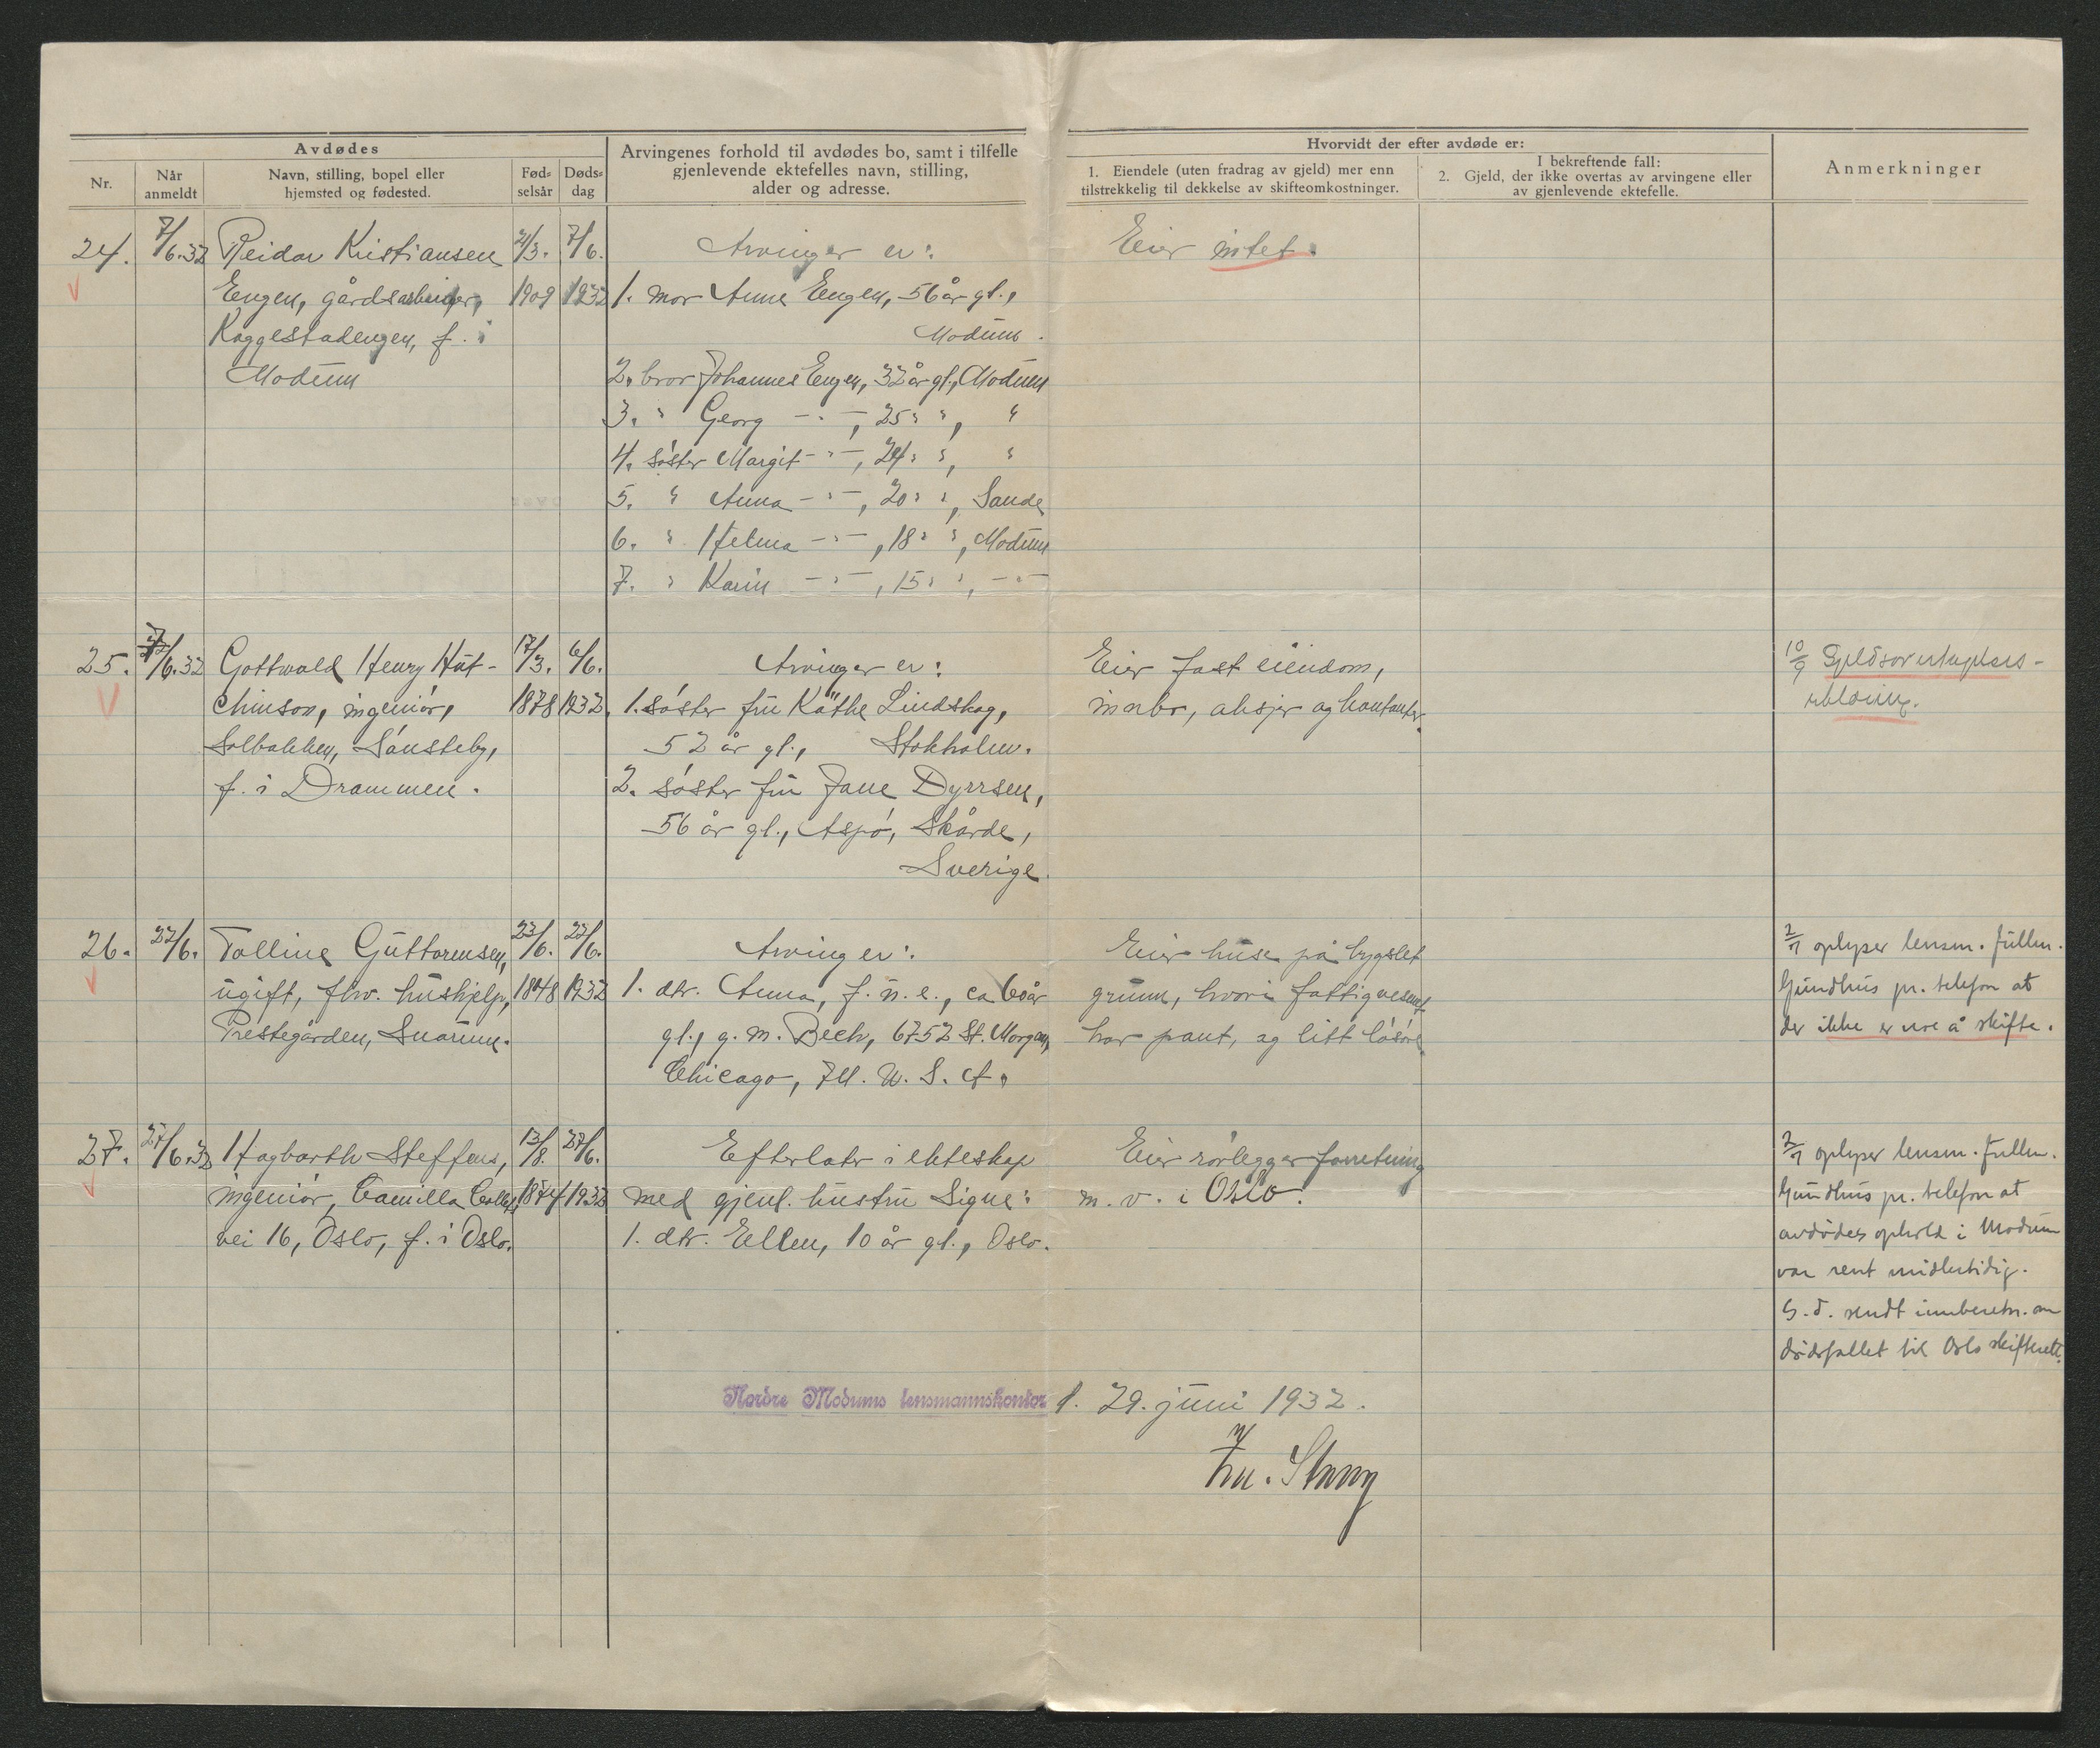 Avdødes
Arvingenes forhold til avdødes bo, samt i tilfelle
gjenlevende ektefelles navn, stilling,
alder og adresse.
Hvorvidt der efter avdøde er:
Anmerkninger
Nr.
Når
anmeldt
Navn, stilling, bopel eller
hjemsted og fødested.
Fød-
selsår
Døds-
dag
1. Eiendele (uten fradrag av gjeld) mer enn
tilstrekkelig til dekkelse av skifteomkostninger.
I bekreftende fall:
2. Gjeld, der ikke overtas av arvingene eller
av gjenlevende ektefelle.
24. 7/6.32 Reidar Kristiansen 21/3. 7/6. Arvinger er: Eier intet.
Engen, gårdsarbeider, 1909 1932 1. mor Anne Engen, 56 år gl.,
Kaggestadengen, f. i Modum.
Modum 2. bror Johannes Engen, 32 år gl., Modum
3. " Georg -"-, 25 " ", "
4. søster Margit -"-, 24 " ", "
5. " Anna -"-, 20 " ", Sande
6. " Helma -"-, 18 " ", Modum
7. " Karin -"-, 15 " ", -"-
25. /6.32 Gottwald Henry Hut- 17/3. 6/6. Arvinger er: Eier fast eiendom, 10/9 Gjeldsovertagelses-
chinson, ingeniør, 1878 1932. 1. søster fru Käthe Lindskog, innbo, aksjer og kontanter. erklæring.
Solbakken, Sønsteby, 52 år gl., Stokholm.
f. i Drammen. 2. søster fru Jane Dyrrsen,
56 år gl., Aspö, Skårde,
Sverige.
26. 22/6. Talline Guttormsen, 23/6. 22/6. Arving er: Eier huse på bygslet 2/7 oplyser lensm. fullm.
ugift, fhv. hushjelp, 1848 1932 1. dtr. Anna, f. u. e., ca 60 år grunn, hvori fattigvesenet Gundhus pr. telefon at
Prestegården, Snarum. gl., g. m. Bech, 6752 St. Morgan, har pant, og litt løsøre. der ikke er noe å skifte.
Chicago, Ill. U. S. A.
27. 27/6.32 Hagbarth Steffens, 13/8. 27/6. Efterlater i ekteskap Eier rørleggerforretning 2/7 oplyser lensm. fullm.
ingeniør, Camilla Colletts 1874 1932 med gjenl. hustru Signe: m. v. i Oslo. Gundhus pr. telefon at
vei 16, Oslo, f. i Oslo. 1. dtr. Ellen, 10 år gl., Oslo. avdødes ophold i Modum
var rent midlertidig.
S. d. sendt innberetn. om
dødsfallet til Oslo skifterett.
Nordre Modums lensmannskontor d. 29. juni 1932.